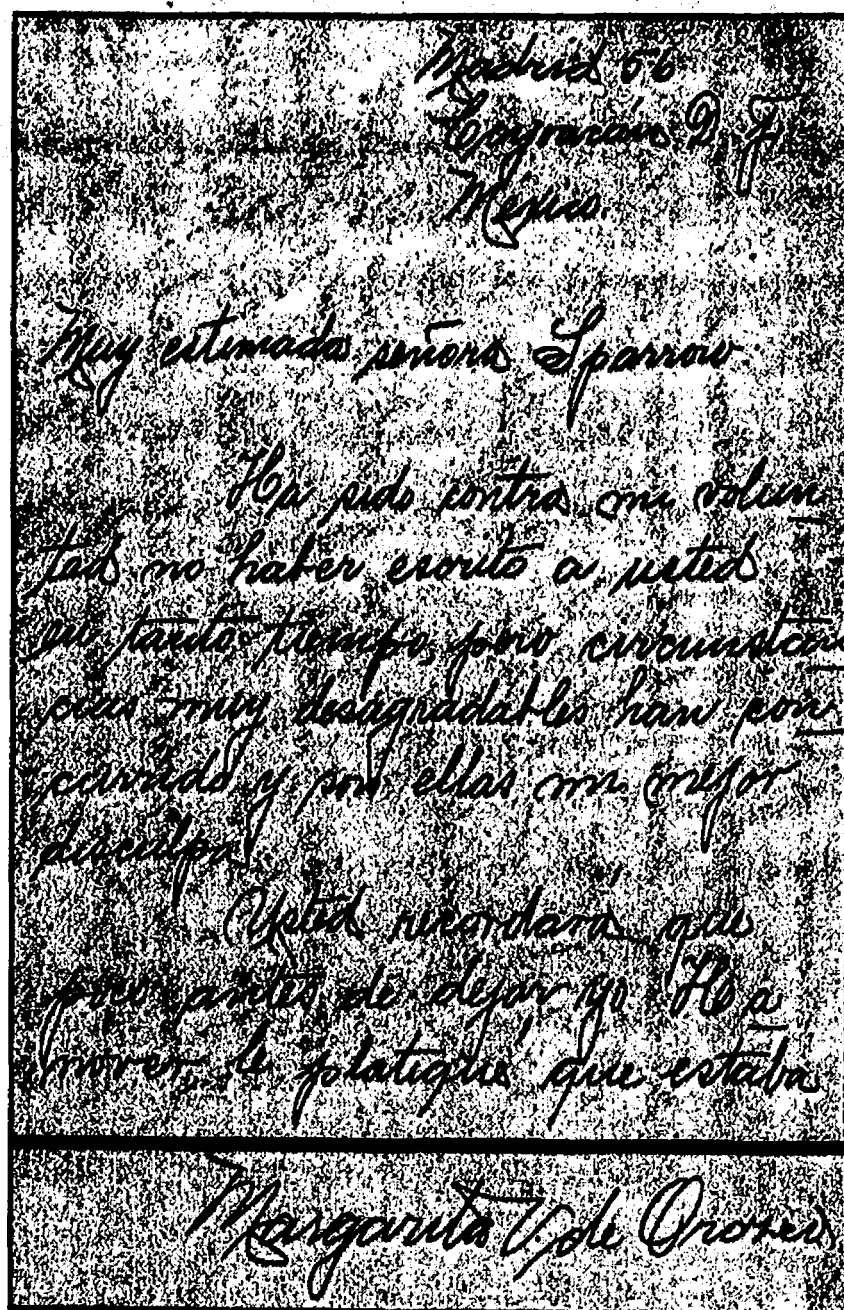 Madrid 56
Coyoacán D. F.
México.
Muy estimada señora Sparrow
Ha sido contra mi volun
tad no haber escrito a usted
en tanto tiempo, pero circunstan
cias muy desagradables han con
currido y son ellas mi mejor
disculpa.
Usted recordará que
poco antes de dejar yo Ha
nover le platiqué que estaba
Margarita V. de Orozco